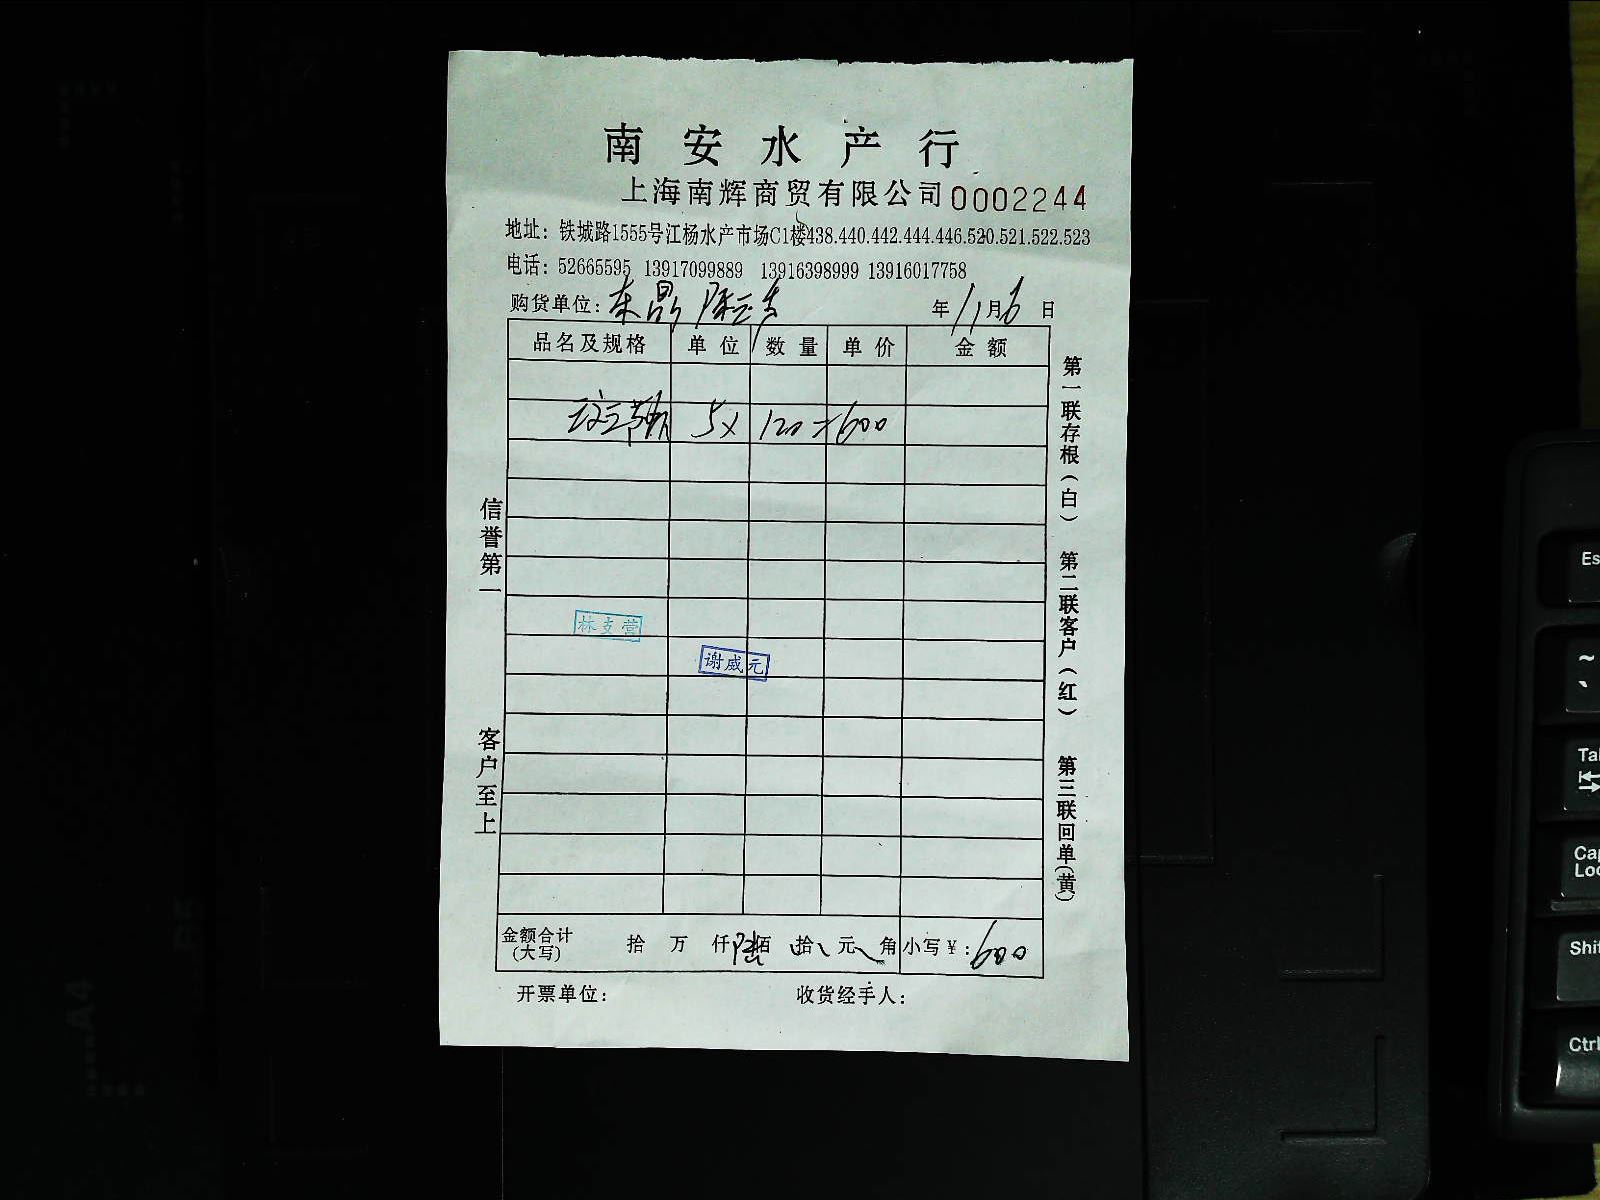 南安水产行
上海南辉商贸有限公司 0002244
地址：铁城路1555号江杨水产市场C1楼438.440.442.444.446.520.521.522.523
电话：52665595 13917099889 13916398999 13916017758
购货单位：东鼎 年11月6日
品名及规格 单位 数量 单价 金额
5× 120=600
林支营
谢威元
金额合计(大写) 拾 万 仟 陆佰 拾 元 角 小写￥：600
开票单位： 收货经手人：
信誉第一
客户至上
第一联存根（白）
第二联客户（红）
第三联回单（黄）
Es
~
`
Ta
Cap
Loc
Shif
Ctrl